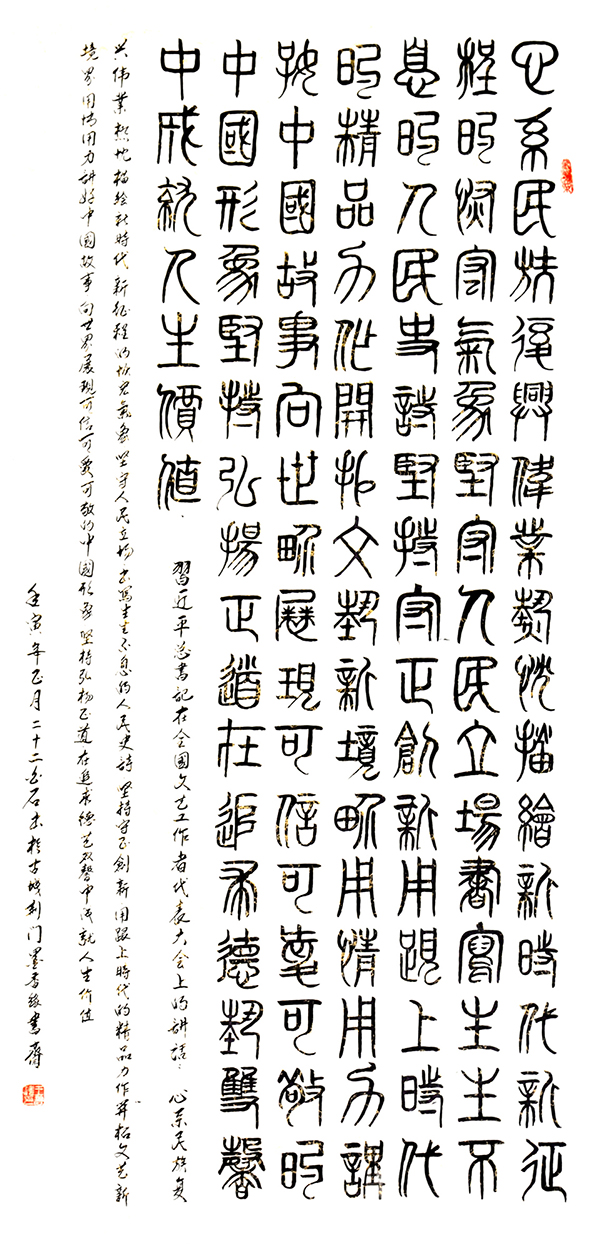 心系民族復興偉業熱忱描繪新時代新征
程的恢宏氣象堅守人民立場書寫生生不
息的人民史詩堅持守正創新用跟上時代
的精品力作開拓文藝新境界用情用力講
好中國故事向世界展現可信可愛可敬的
中國形象堅持弘揚正道在追求德藝雙馨
中成就人生價值
習近平总書記在全國文艺工作者代表大会上的講話 心系民族复
兴偉業熱忱描绘新時代新征程的恢宏氣象坚守人民立場書寫生生不息的人民史詩坚持守正創新用跟上時代的精品力作开拓文艺新
境界用情用力讲好中國故事向世界展現可信可爱可敬的中國形象坚持弘扬正道在追求德艺双馨中成就人生价值
壬寅年正月二十二石书於古城荆门墨香缘書齋